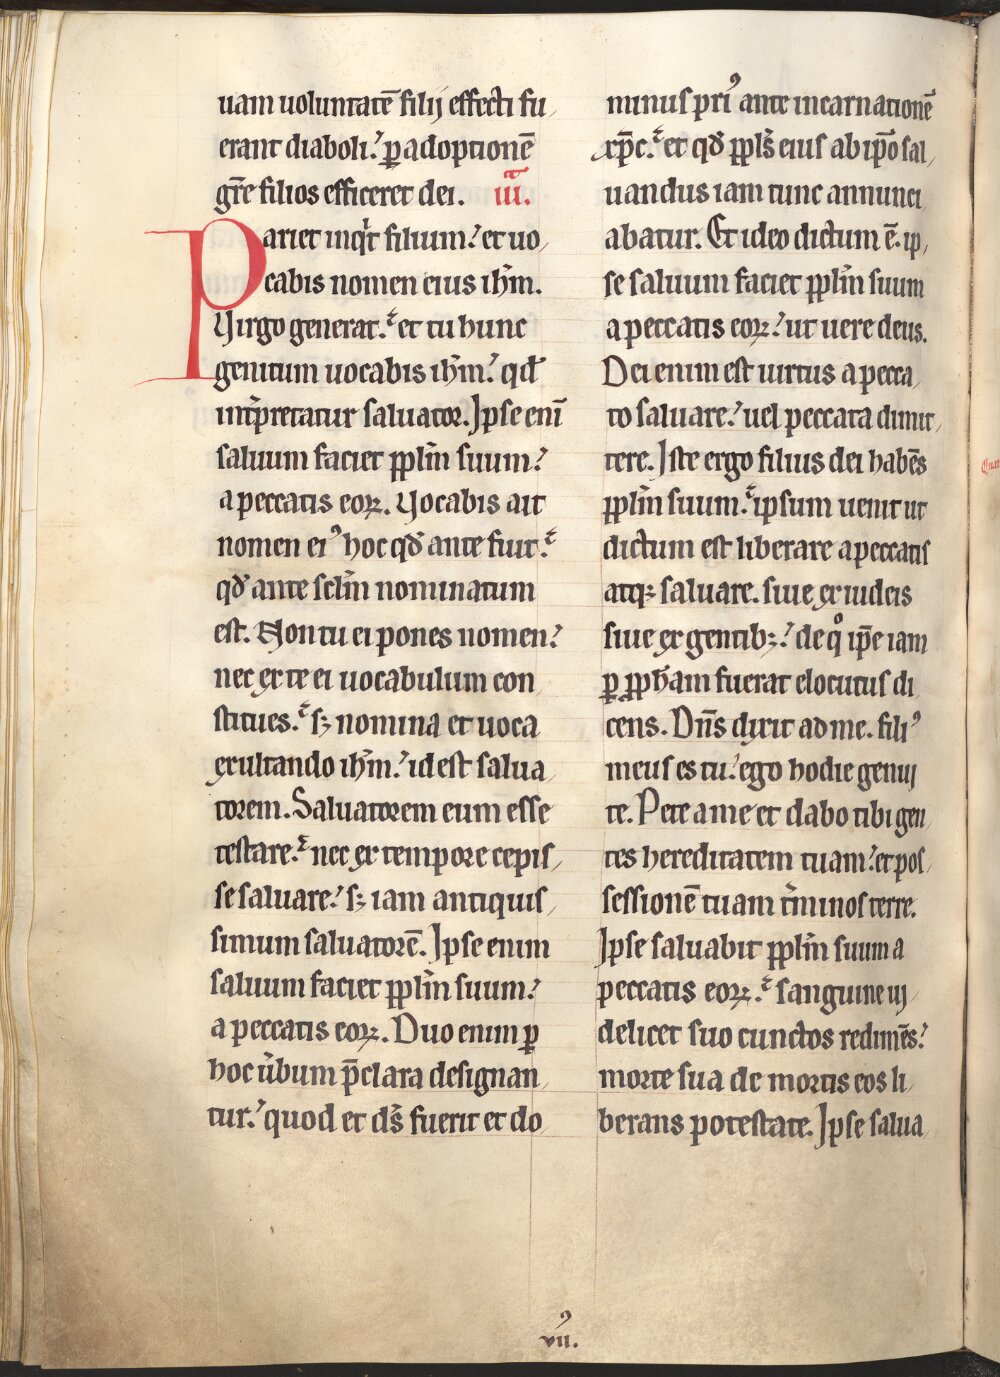 uam uoluntatē filij effecti fu
erant diaboli. ꝑ adoptionē
gr̄e filios efficeret dei. iii.
Pariet inqͥt filium. et uo
cabis nomen eius ih̄m.
Uirgo generat. et tu hunc
genitum uocabis ih̄m. qd̄
int̄pretatur saluator. Ipse eni̅
saluum faciet ppl̄m suum.
a peccatis eoꝝ. Vocabis ait
nomen eiꝰ hoc qd̄ ante fuit.
qd̄ ante scl̄m nominatum
est. Non tu ei pones nomen.
nec ex te ei uocabulum con
stitues. sꝫ nomina et uoca
exultando ih̄m. id est salua
torem. Saluatorem eum esse
testare. nec ex tempore cepis
se saluare. sꝫ iam antiquis
simum saluatorē. Ipse enim
saluum faciet ppl̄m suum.
a peccatis eoꝝ. Duo enim ꝑ
hoc u̅bum p̄clara designan
tur. quod et ds̄ fuerit et do
minus priꝰ ante incarnationē
xp̄c. et qd̄ ppls̄ eius ab ip̄o sal
uandus iam tunc annunci
abatur. Et ideo dictum ē. ip
se saluum faciet ppl̄m suum
a peccatis eoꝝ. ut uere deus.
Dei enim est uirtus a pecca
to saluare. uel peccata dimit
tere. Iste ergo filius dei habēs
ppl̄m suum. ipsum uenit ut
dictum est liberare a peccatis
atqꝫ saluare. siue ex iudeis
siue ex gentibꝫ. de qͦ ip̄e iam
ꝑ pph̄am fuerat elocutus di
cens. Dn̄s dixit ad me. filiꝰ
meus es tu. ego hodie genui
te. Pete a me et dabo tibi gen
tes hereditatem tuam. et pos
sessionē tuam t̄minos terre.
Ipse saluabit ppl̄m suum a
peccatis eoꝝ. sanguine uı
delicet suo cunctos redimēs.
morte sua de mortis eos li
berans potestate. Ipse salua
viiꝰ.